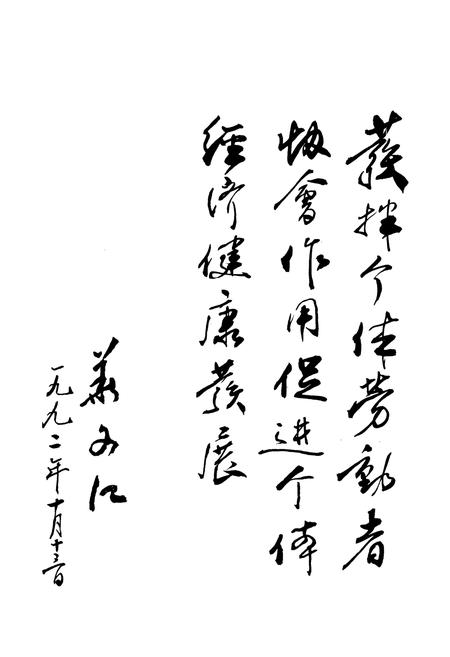 發揮个体勞動者
协會作用促进个体
經济健康發展
一九九二年十月十三日